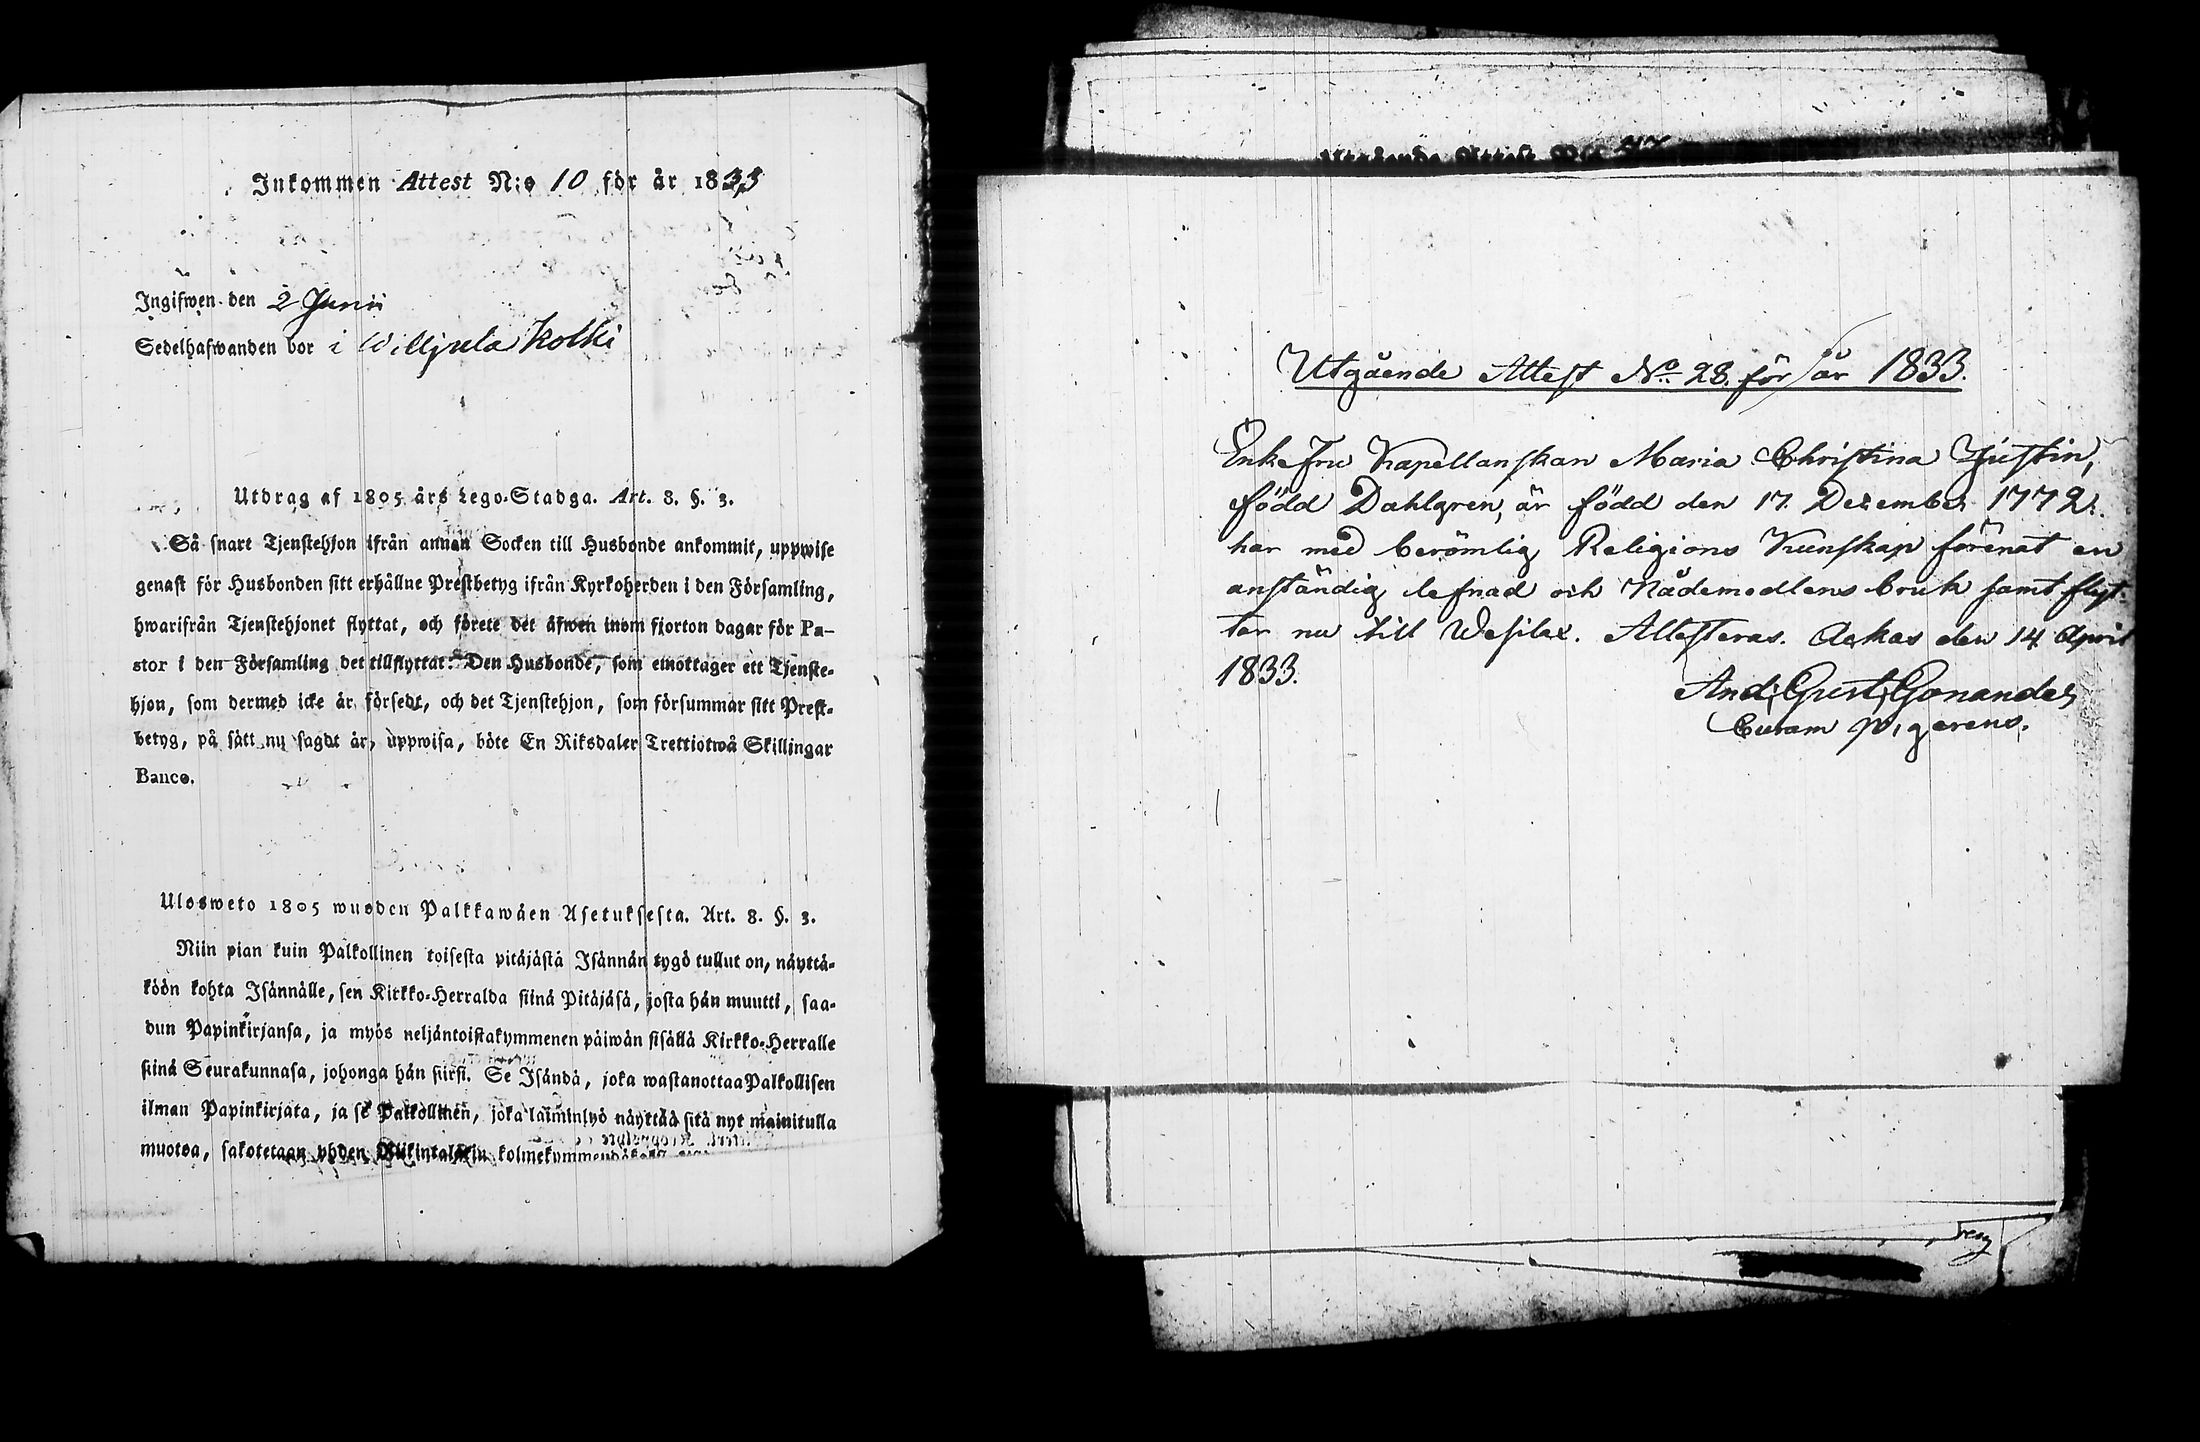 Inkommen Attest N:o 10 för år 1833
Ingifwen den 2 Junii
Sedelhafwanden bor i Willjula Kolki
Utdrag af 1805 års Lego-Stadga. Art. 8. §. 3.
Så snart Tjenstehjon ifrån annan Socken till Husbonde ankommit, uppwise
genast för Husbonden sitt erhållne Prestbetyg ifrån Kyrkoherden i den Församling,
hwarifrån Tjenstehjonet flyttat, och förete det äfwen inom fjorton dagar för Pa-
stor i den Församling det tillflyttat. Den Husbonde, som emottager ett Tjenste-
hjon, som dermed icke är försedt, och det Tjenstehjon, som försummar sitt Prest-
betyg, på sätt nu sagdt är, uppwisa, böte En Riksdaler Trettiotwå Skillingar
Banco.
Ulosweto 1805 wuoden Palkkawäen Asetuksesta. Art. 8. §. 3.
Niin pian kuin Palkollinen toisesta pitäjästä Isännän tygö tullut on, näyttä-
köön kohta Isännälle, sen Kirkko-Herralda siinä Pitäjäsä, josta hän muutti, saa-
dun Papinkirjansa, ja myös neljäntoistakymmenen päiwän sisällä Kirkko-Herralle
siinä Seurakunnasa, johonga hän siirsi. Se Isändä, joka wastanottaa Palkollisen
ilman Papinkirjata, ja se Palkollinen, joka laiminlyö näyttää sitä nyt mainitulla
muotoa, sakotetaan yhden Riikintalarin
Utgående Attest No. 28. för år 1833.
Enke Fru Kapellanskan Maria Christina Justin,
född Dahlgren, är född den 17. December 1772.
har med berömlig Religions Kunskap förenat en
anständig lefnad och Nådemedlens bruk samt flyt-
tar nu till Wesilax. Attesteras. Ackas den 14 April
1833.
And. Gust. Gonander
Curam p. gerens.